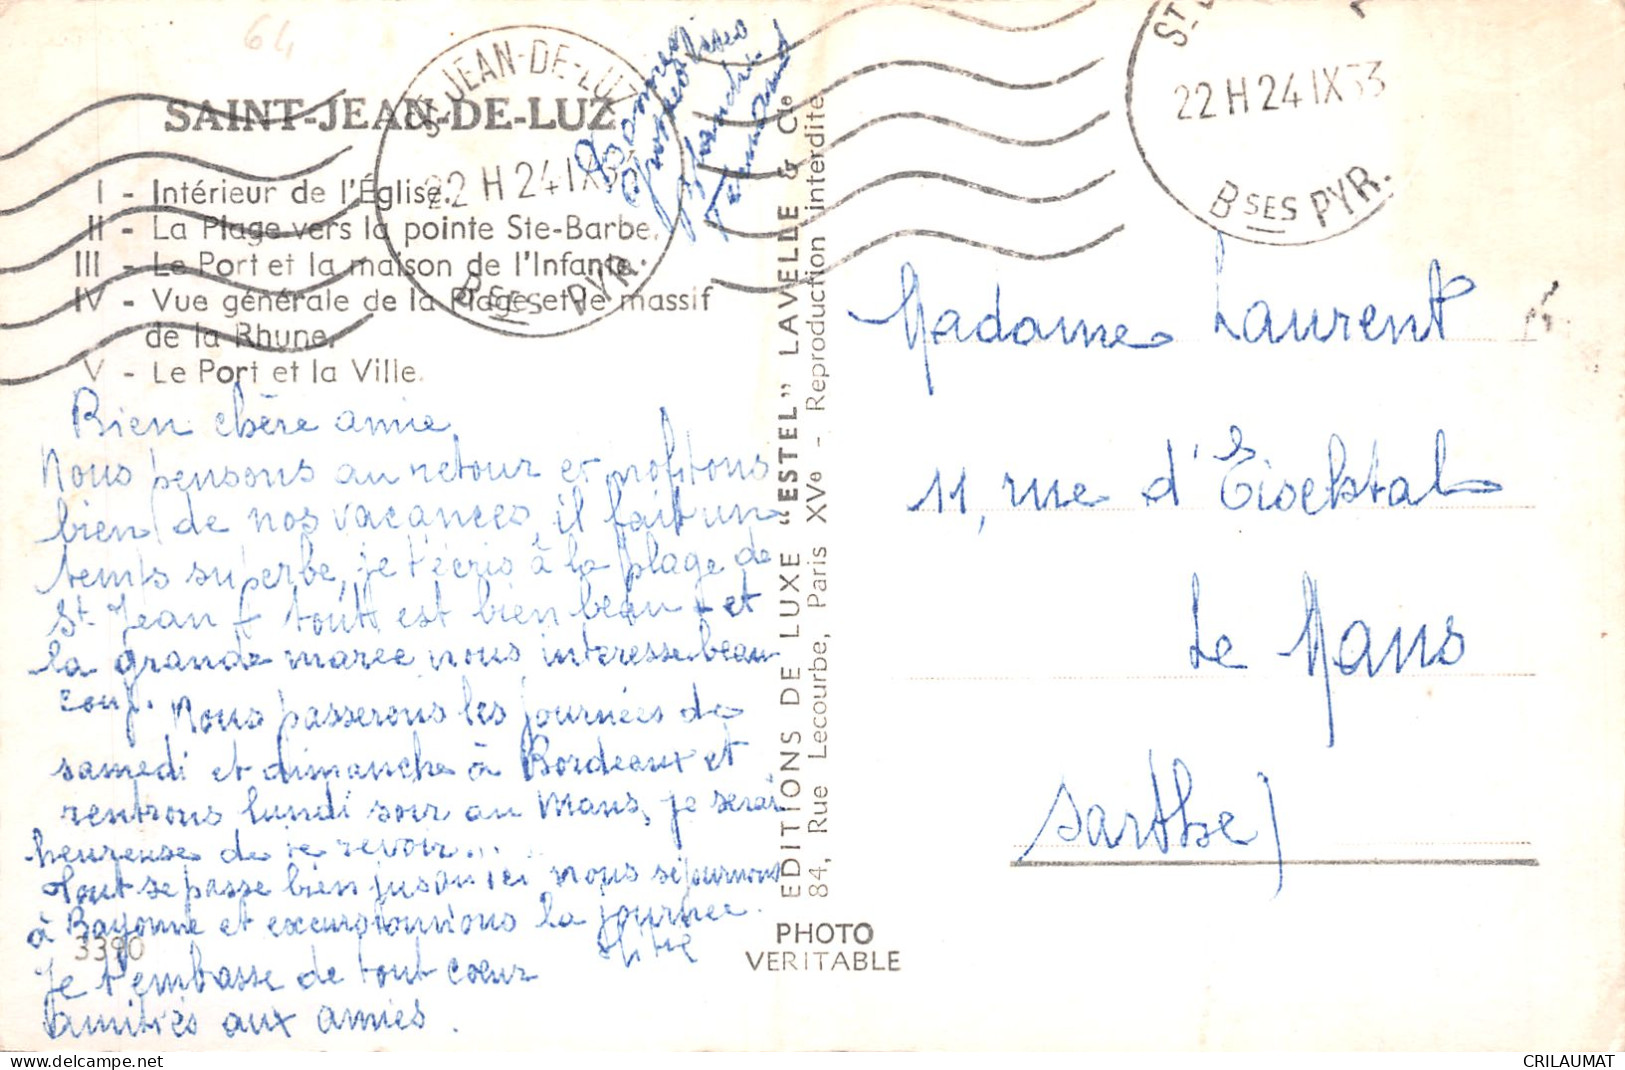 64
SAINT-JEAN-DE-LUZ
I - Intérieur de l'Église.
II - La Plage vers la pointe Ste-Barbe.
III - Le Port et la maison de l'Infante.
IV - Vue générale de la Plage et le massif
de la Rhune.
V - Le Port et la Ville.
ST JEAN-DE-LUZ
22 H 24 IX 53
BSES PYR.
22 H 24 IX 53
BSES PYR.
Bonnes
Blanche
Bien chère amie
Nous pensons au retour et profitons
bien de nos vacances, il fait un
temps superbe, je t'écris à la plage de
St Jean tout est bien beau et
la grande marée nous intéresse beau
coup. Nous passerons les journées de
samedi et dimanche à Bordeaux et
rentrons lundi soir au Mans, je serai
heureuse de te revoir...
Tout se passe bien jusqu'ici nous séjournons
à Bayonne et excursionnions la journée.
Je t'embrasse de tout coeur
amitiés aux amies.
3390
EDITIONS DE LUXE "ESTEL" LAVELLE & Cie
84, Rue Lecourbe, Paris XVe - Reproduction interdite
PHOTO
VERITABLE
Madame Laurent
11, rue d'Eichtal
Le Mans
Sarthe)
CRILAUMAT